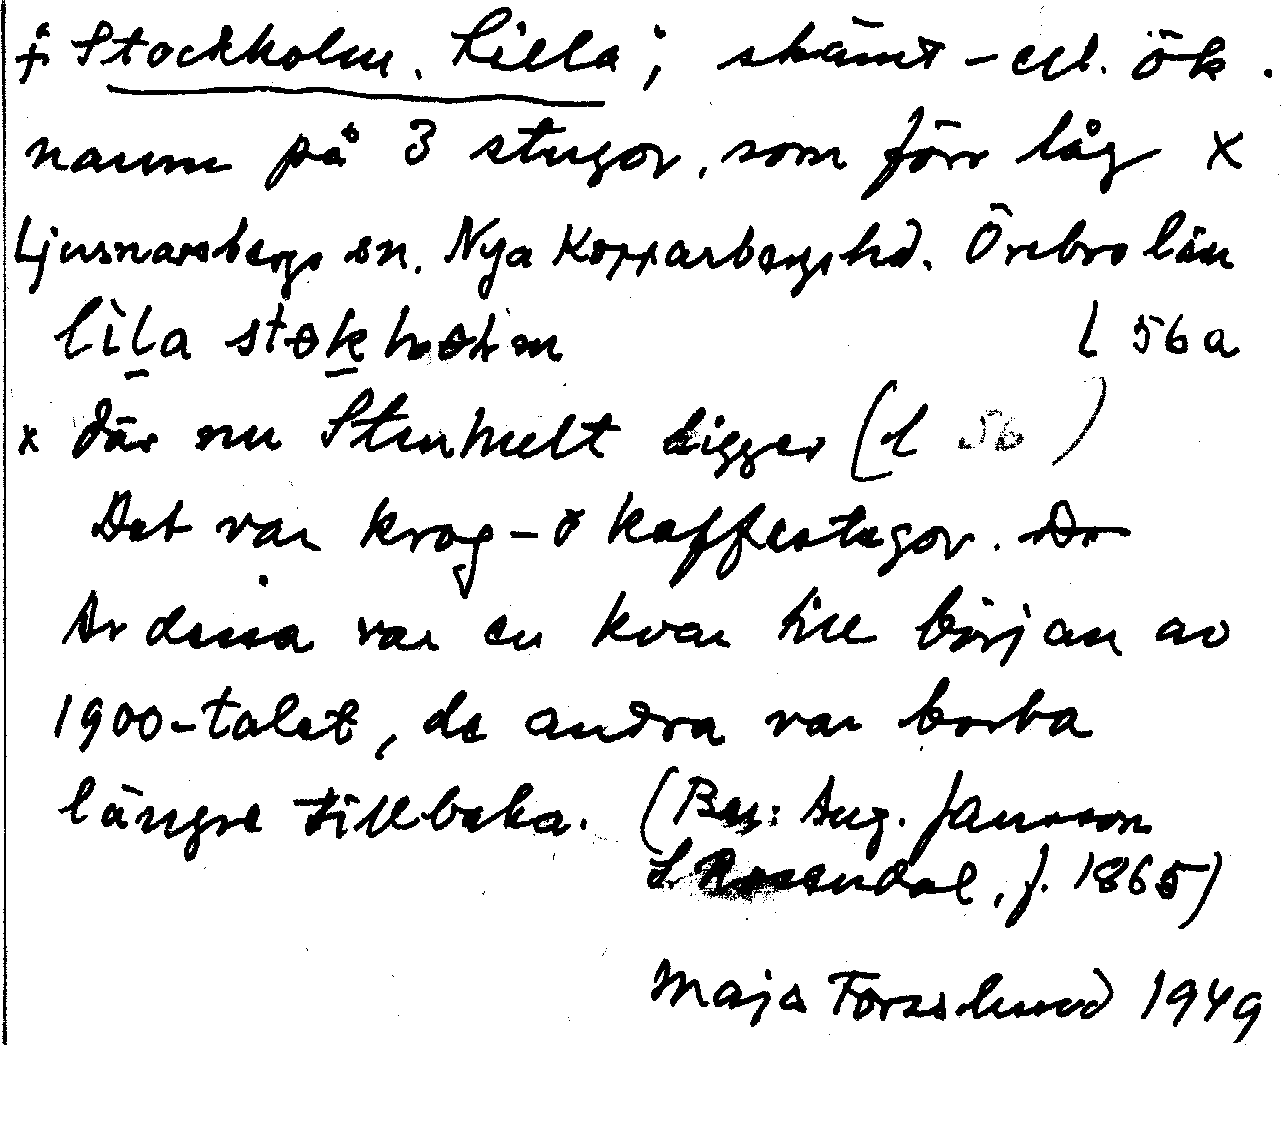 † Stockholm, Lilla; skämt- ell. ök.
namn på 3 stugor, som förr låg x
Ljusnarsbergs sn. Nya Kopparbergs hd. Örebro län
lila stokholm l 56a
x där nu Stenhult ligger (l 56)
Det var krog- o kaffestugor. Do
Av dessa var en kvar till början av
1900-talet, de andra var borta
längre tillbaka. (Ber: Aug. Jansson
L. Rosendal, f. 1865)
Maja Forsslund 1949